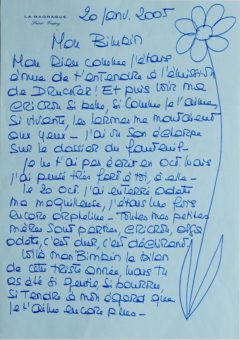 LA MADRAGUE
Saint Tropez
20 Janv. 2005
Mon Bimbin
Mon Bien comme j'étais
émue de t'entendre à l'émission
de DRUCKER! Et puis voir ma
CRICRI Si belle, si comme je l'aime,
Si vivante, les larmes me montaient
aux yeux - J'ai vu son écharpe
sur le dossier du fauteuil -
Je ne t'ai pas écrit en Oct. mais
j'ai pensé très fort à toi, à elle -
Le 20 oct. j'ai enterré Odette
ma maquilleuse, j'étais une fois
encore orpheline - Toutes mes petites
mères sont parties, CRICRI, Olga
Odette, c'est dur, c'est déchirant
Voilà mon Bimbin le bilan
de cette triste année, mais tu
as été si gentil si bourru,
si tendre à mon égard que
je t'aime encore plus -